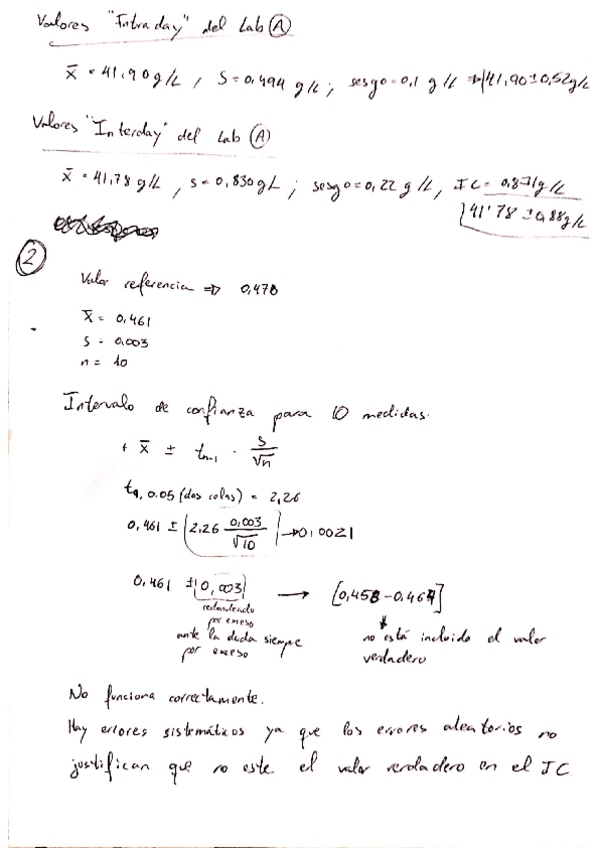 Valores "Intraday" del Lab Ⓐ
x̄ = 41,90 g/L , S = 0,494 g/L ; sesgo = 0,1 g/L ⇒ 41,90 ± 0,52 g/L
Valores "Interday" del Lab Ⓐ
x̄ = 41,78 g/L , s = 0,830 g/L ; sesgo = 0,22 g/L, IC = 0,871 g/L
41'78 ± 0,88 g/L
②
Valor referencia ⇒ 0,478
x̄ = 0,461
s = 0,003
n = 10
Intervalo de confianza para 10 medidas.
+ x̄ ± tn-1 · s/√n
t9, 0.05 (dos colas) = 2,26
0,461 ± 2,26 0,003/√10 → 0,0021
0,461 ± 0,003 → [0,458 - 0,464]
redondeado
por exceso
ante la duda siempre
por exceso
no está incluido el valor
verdadero
No funciona correctamente.
Hay errores sistemáticos ya que los errores aleatorios no
justifican que no este el valor verdadero en el IC